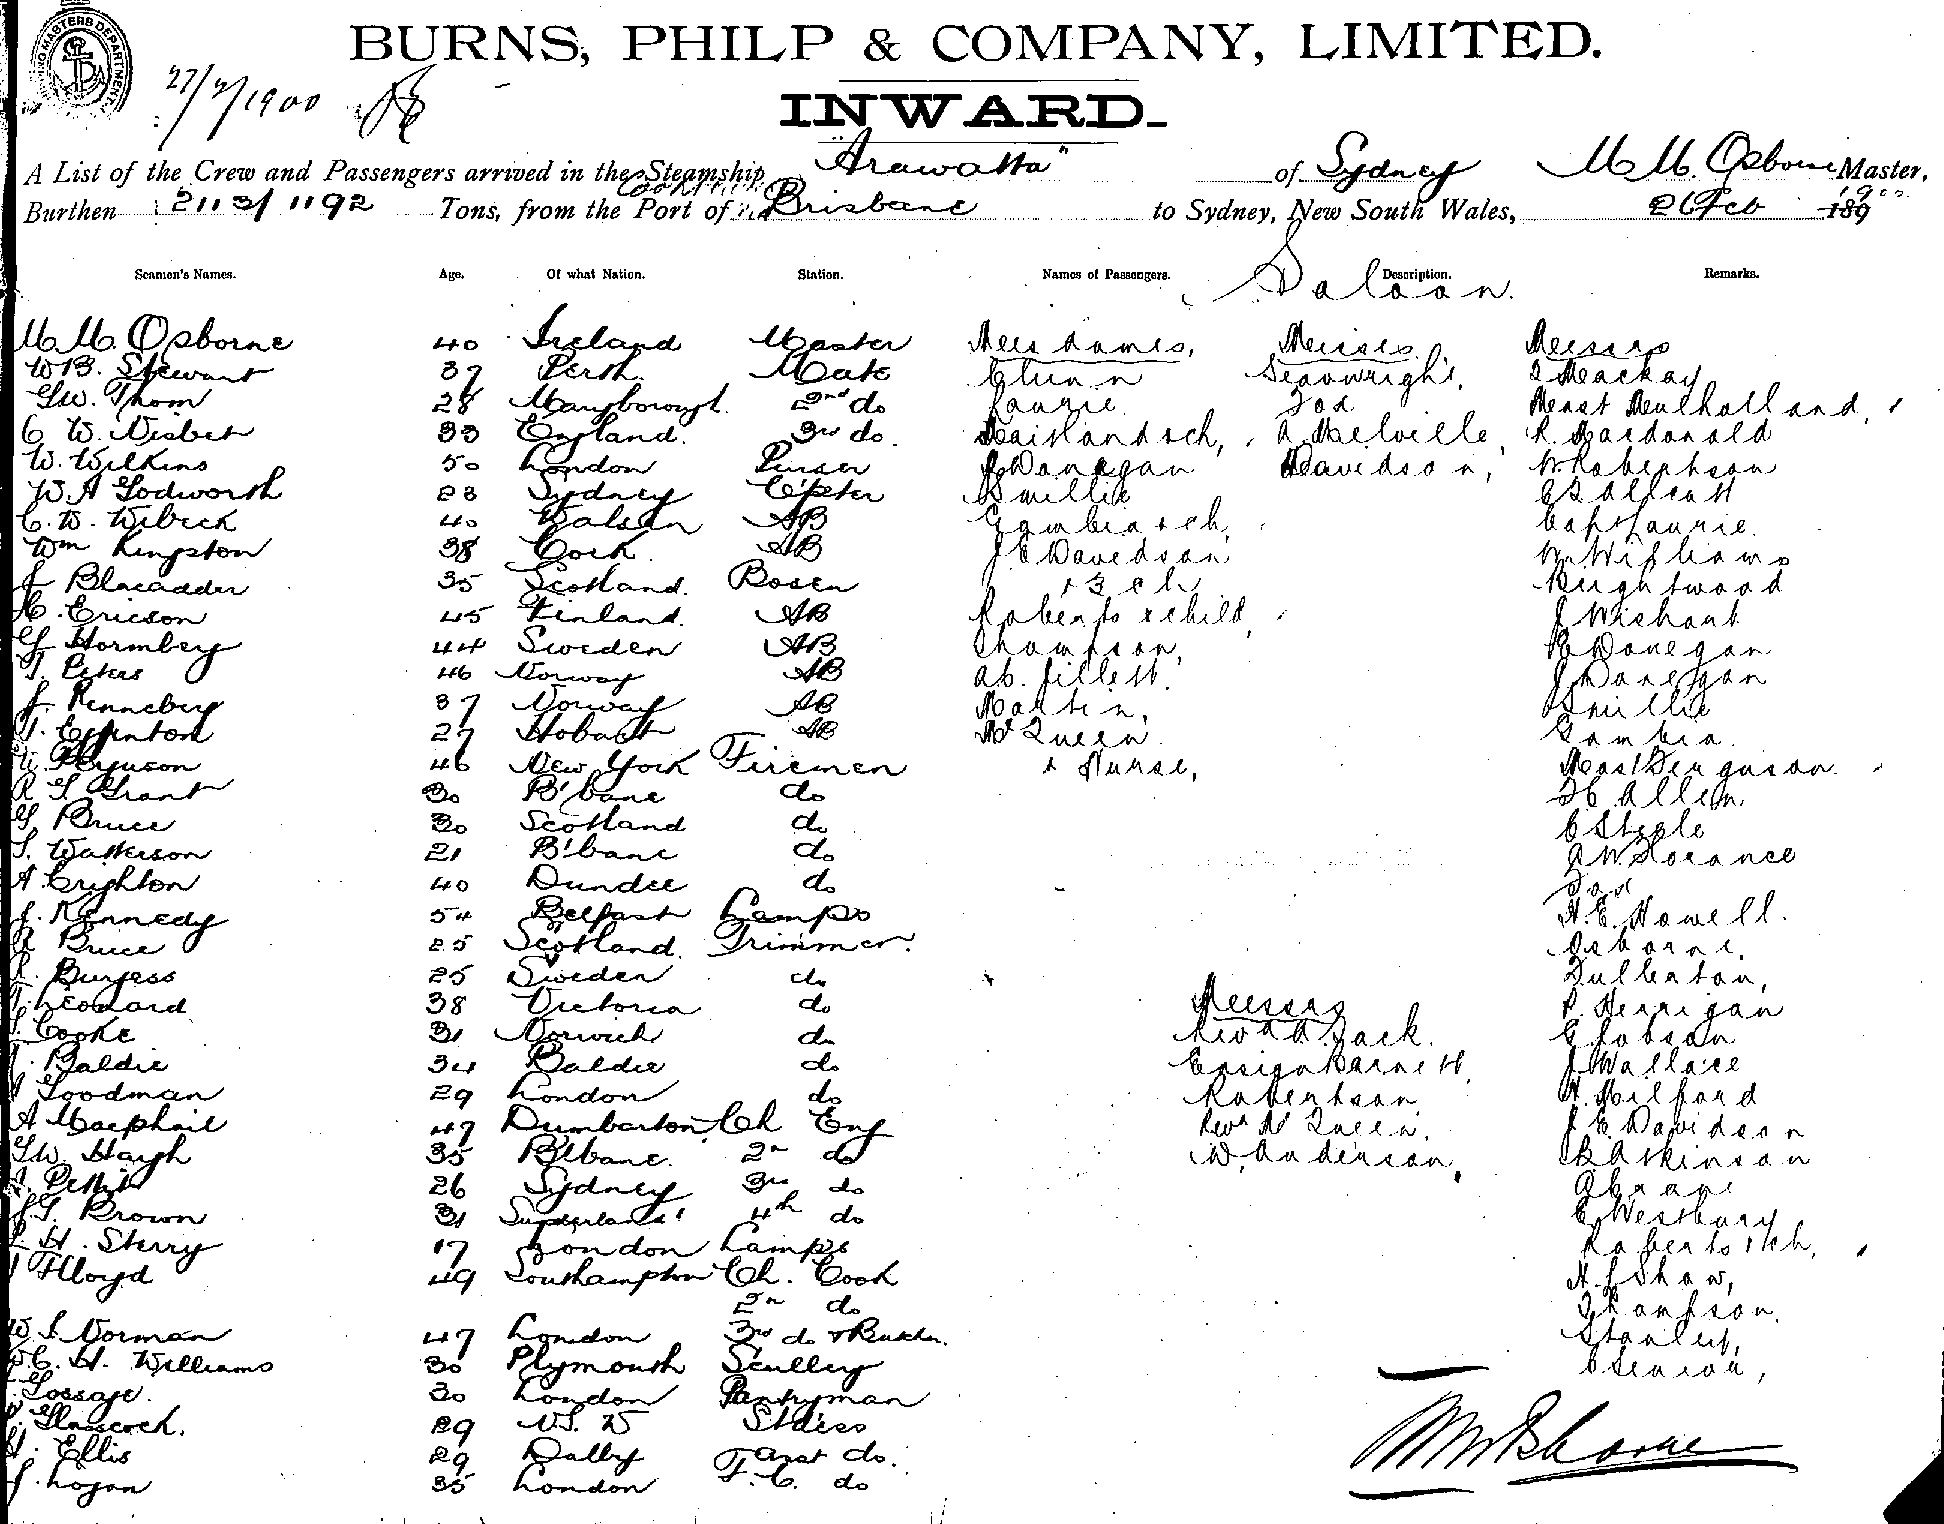 BURNS, PHILP & COMPANY, LIMITED.
27/2/1900
INWARD.
A List of the Crew and Passengers arrived in the Steamship "Arawatta" of Sydney M M. Osborne Master,
Burthen 2113/1192 Tons, from the Port of Brisbane to Sydney, New South Wales, 26 Feb 189 1900
Seamen's Names. Age. Of what Nation. Station. Names of Passengers. Description. Remarks.
Saloon.
M M. Osborne 40 Ireland Master Mesdames, Misses Messrs
W B. Stewart 37 Perth Mate Seawright, Mackay
G W. Thom 28 Maryborough 2nd do Laurie Fox Mast Mulholland,
C W. Nisbet 33 England. 3rd do. Maitland & ch, A Melville, R. Macdonald
W. Wilkins 50 London Purser J Donegan Davidson, W. Robertson
W. A Godworth 23 Sydney C'pter Smillie
C. W. Wibeck 40 AB Gambia & ch, Capt Laurie
Wm Kingston 38 Cork AB J E Davidson W. Williams
J Blacadder 35 Scotland. Bosen & 3 ch Brightwood
H. Ericson 45 Finland. AB Roberts & child, J Wishart
G Hormberg 44 Sweden AB Thompson, Donegan
T. Peters 46 Norway AB J Donegan
J. Renneberg 37 Norway AB Martin, Smillie
T. 27 Hobart AB McQueen Gambia
W. Ferguson 46 New York Firemen & Nurse, Mast Ferguson
R G Grant 30 B'bane do H Allen
G Bruce 30 Scotland do C Steele
S. Watterson 21 B'bane do A W Dorance
A. Crighton 40 Dundee do Fox
J. Kennedy 54 Belfast Lamps H. E. Howell.
A Bruce 25 Scotland. Trimmer. Osborne,
Burgess 25 Sweden do Fullerton,
Leonard 38 Victoria do Messrs P. Merrigan
Cooke 31 Norwich do Rev A. A. Jack. G Jobson
Baldie 34 Baldie do Ensign Barnett J Wallace
Goodman 29 London do Robertson A. Milford
A Macphail 47 Dumbarton Ch Eng Revd McQueen. J E Davidson
G W. Haigh 35 B'bane. 2n do W. Anderson, Atkinson
Pettit 26 Sydney 3rd do
J. G. Brown 31 Sunderland 4th do E Westbury
H. Sterry 17 London Lamps Roberts & ch,
Floyd 49 Southampton Ch. Cook H. J Shaw,
2n do Thompson.
W J Norman 47 London 3rd do & Butcher. Stanley,
W. C. H. Williams 30 Plymouth Sculley
Gossage. 30 London Pantryman
Glascock. 29 N. S. W St'dess
H. Ellis 29 Dalby Asst do.
J. Logan 35 London F. C. do
M M Osborne